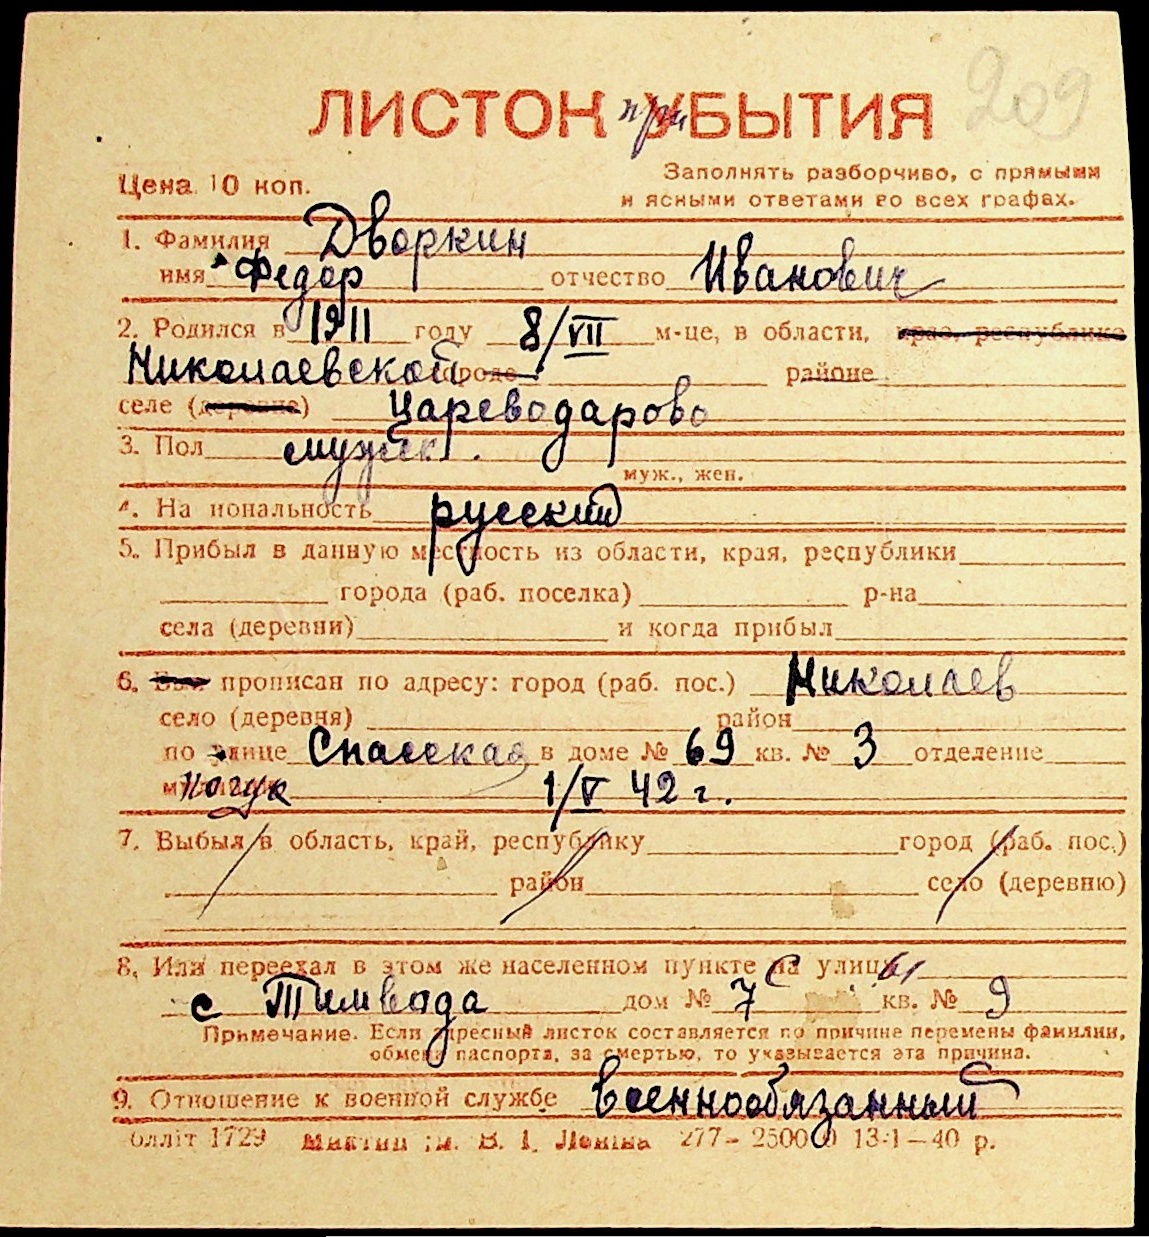 209
ЛИСТОК при УБЫТИЯ
Цена 10 коп.
Заполнять разборчиво, с прямыми
и ясными ответами во всех графах.
1. Фамилия Дворкин
имя Федор отчество Иванович
2. Родился в 1911 году 8/VII м-це, в области, крае, республике
Николаевской городе районе
селе (деревне) Цареводарово
3. Пол мужск.
муж., жен.
4. На иональность русский
5. Прибыл в данную местность из области, края, республики
города (раб. поселка) р-на
села (деревни) и когда прибыл
6. Был прописан по адресу: город (раб. пос.) Николаев
село (деревня) район
по улице Спасская в доме № 69 кв. № 3 отделение
1/V 42 г.
7. Выбыл в область, край, республику город (раб. пос.)
район село (деревню)
8. Или переехал в этом же населенном пункте на улицу
с Тимвода дом № 7 кв. № 9
Примечание. Если адресный листок составляется по причине перемены фамилии,
обмена паспорта, за смертью, то указывается эта причина.
9. Отношение к военной службе военнообязанный
блліт 1729 ім. В. І. Леніна 277— 13-1—40 р.